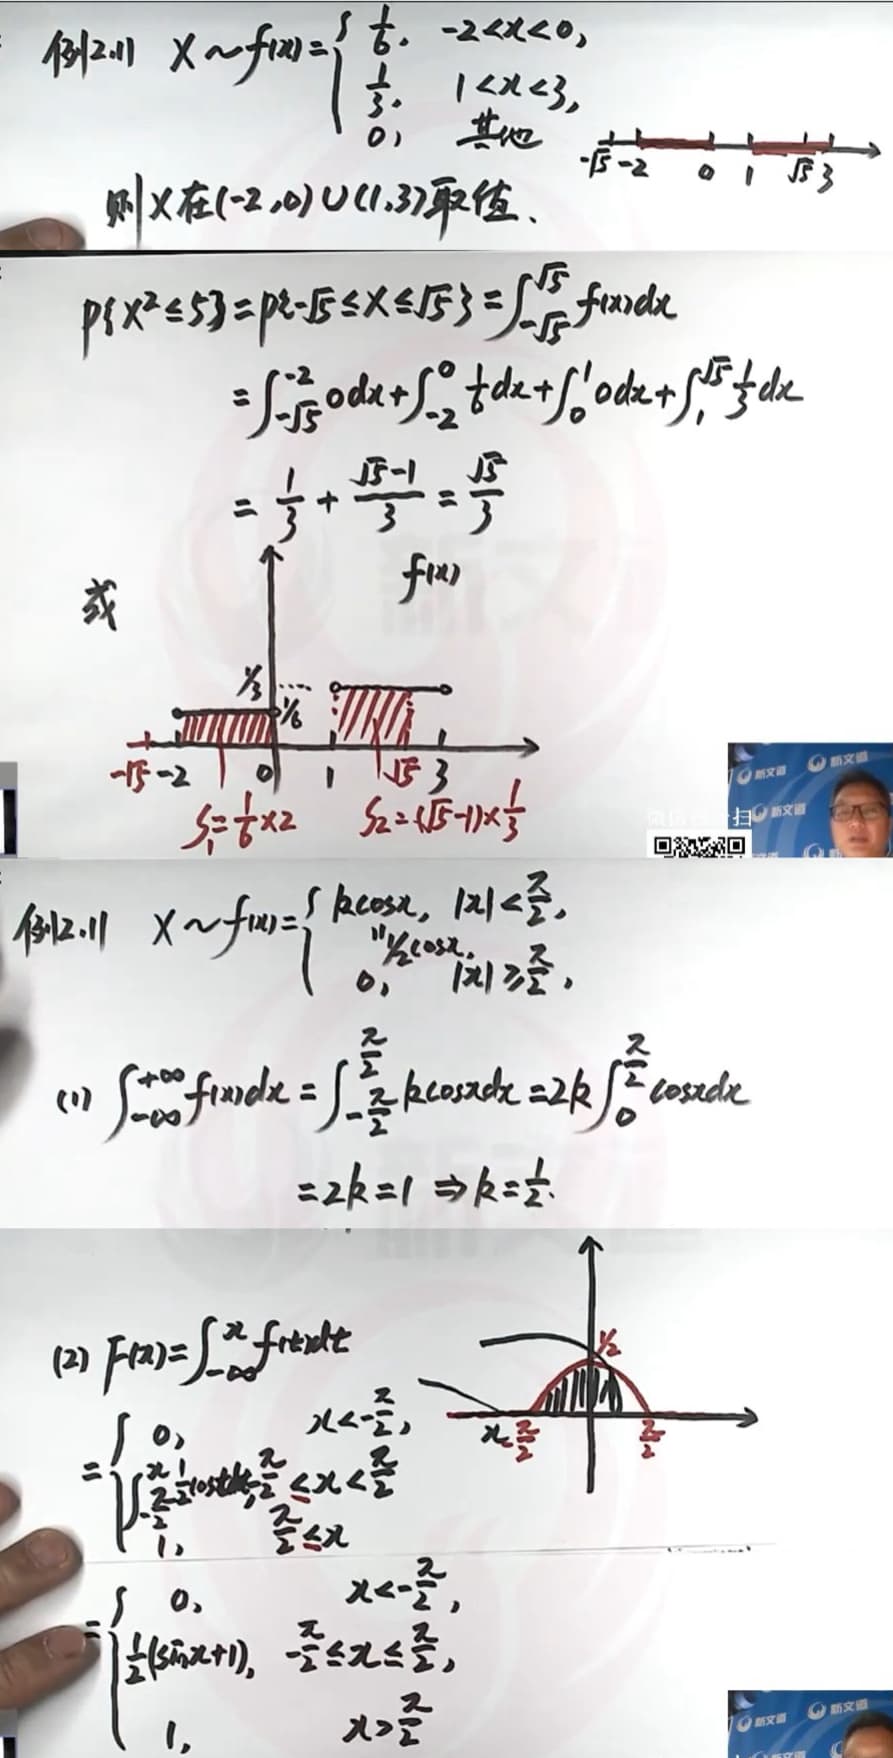 例2.11 X~f(x)={ 1/6, -2<x<0,
1/3, 1<x<3,
0, 其他
-√5 -2 0 1 √5 3
则X在(-2,0)∪(1,3)取值.
P{X²≤5}=P{-√5≤X≤√5}=∫_{-√5}^{√5} f(x)dx
=∫_{-√5}^{-2} 0dx+∫_{-2}^{0} 1/6 dx+∫_0^1 0dx+∫_1^{√5} 1/3 dx
= 1/3 + (√5-1)/3 = √5/3
或 f(x)
1/3 1/6
-√5 -2 0 1 √5 3
S₁=1/6×2 S₂=(√5-1)×1/3
新文道 新文道
新文道
扫
例2.11 X~f(x)={ kcosx, |x|<π/2,
" 1/2cosx,
0, |x|≥π/2,
(1) ∫_{-∞}^{+∞} f(x)dx=∫_{-π/2}^{π/2} kcosxdx=2k∫_0^{π/2} cosxdx
=2k=1 ⇒ k=1/2.
(2) F(x)=∫_{-∞}^{x} f(t)dt
1/2
x -π/2 π/2
={ 0, x<-π/2,
∫_{-π/2}^{x} 1/2 costdt, -π/2≤x<π/2
1, π/2≤x
={ 0, x<-π/2,
1/2(sinx+1), -π/2≤x≤π/2,
1, x>π/2
新文道 新文道